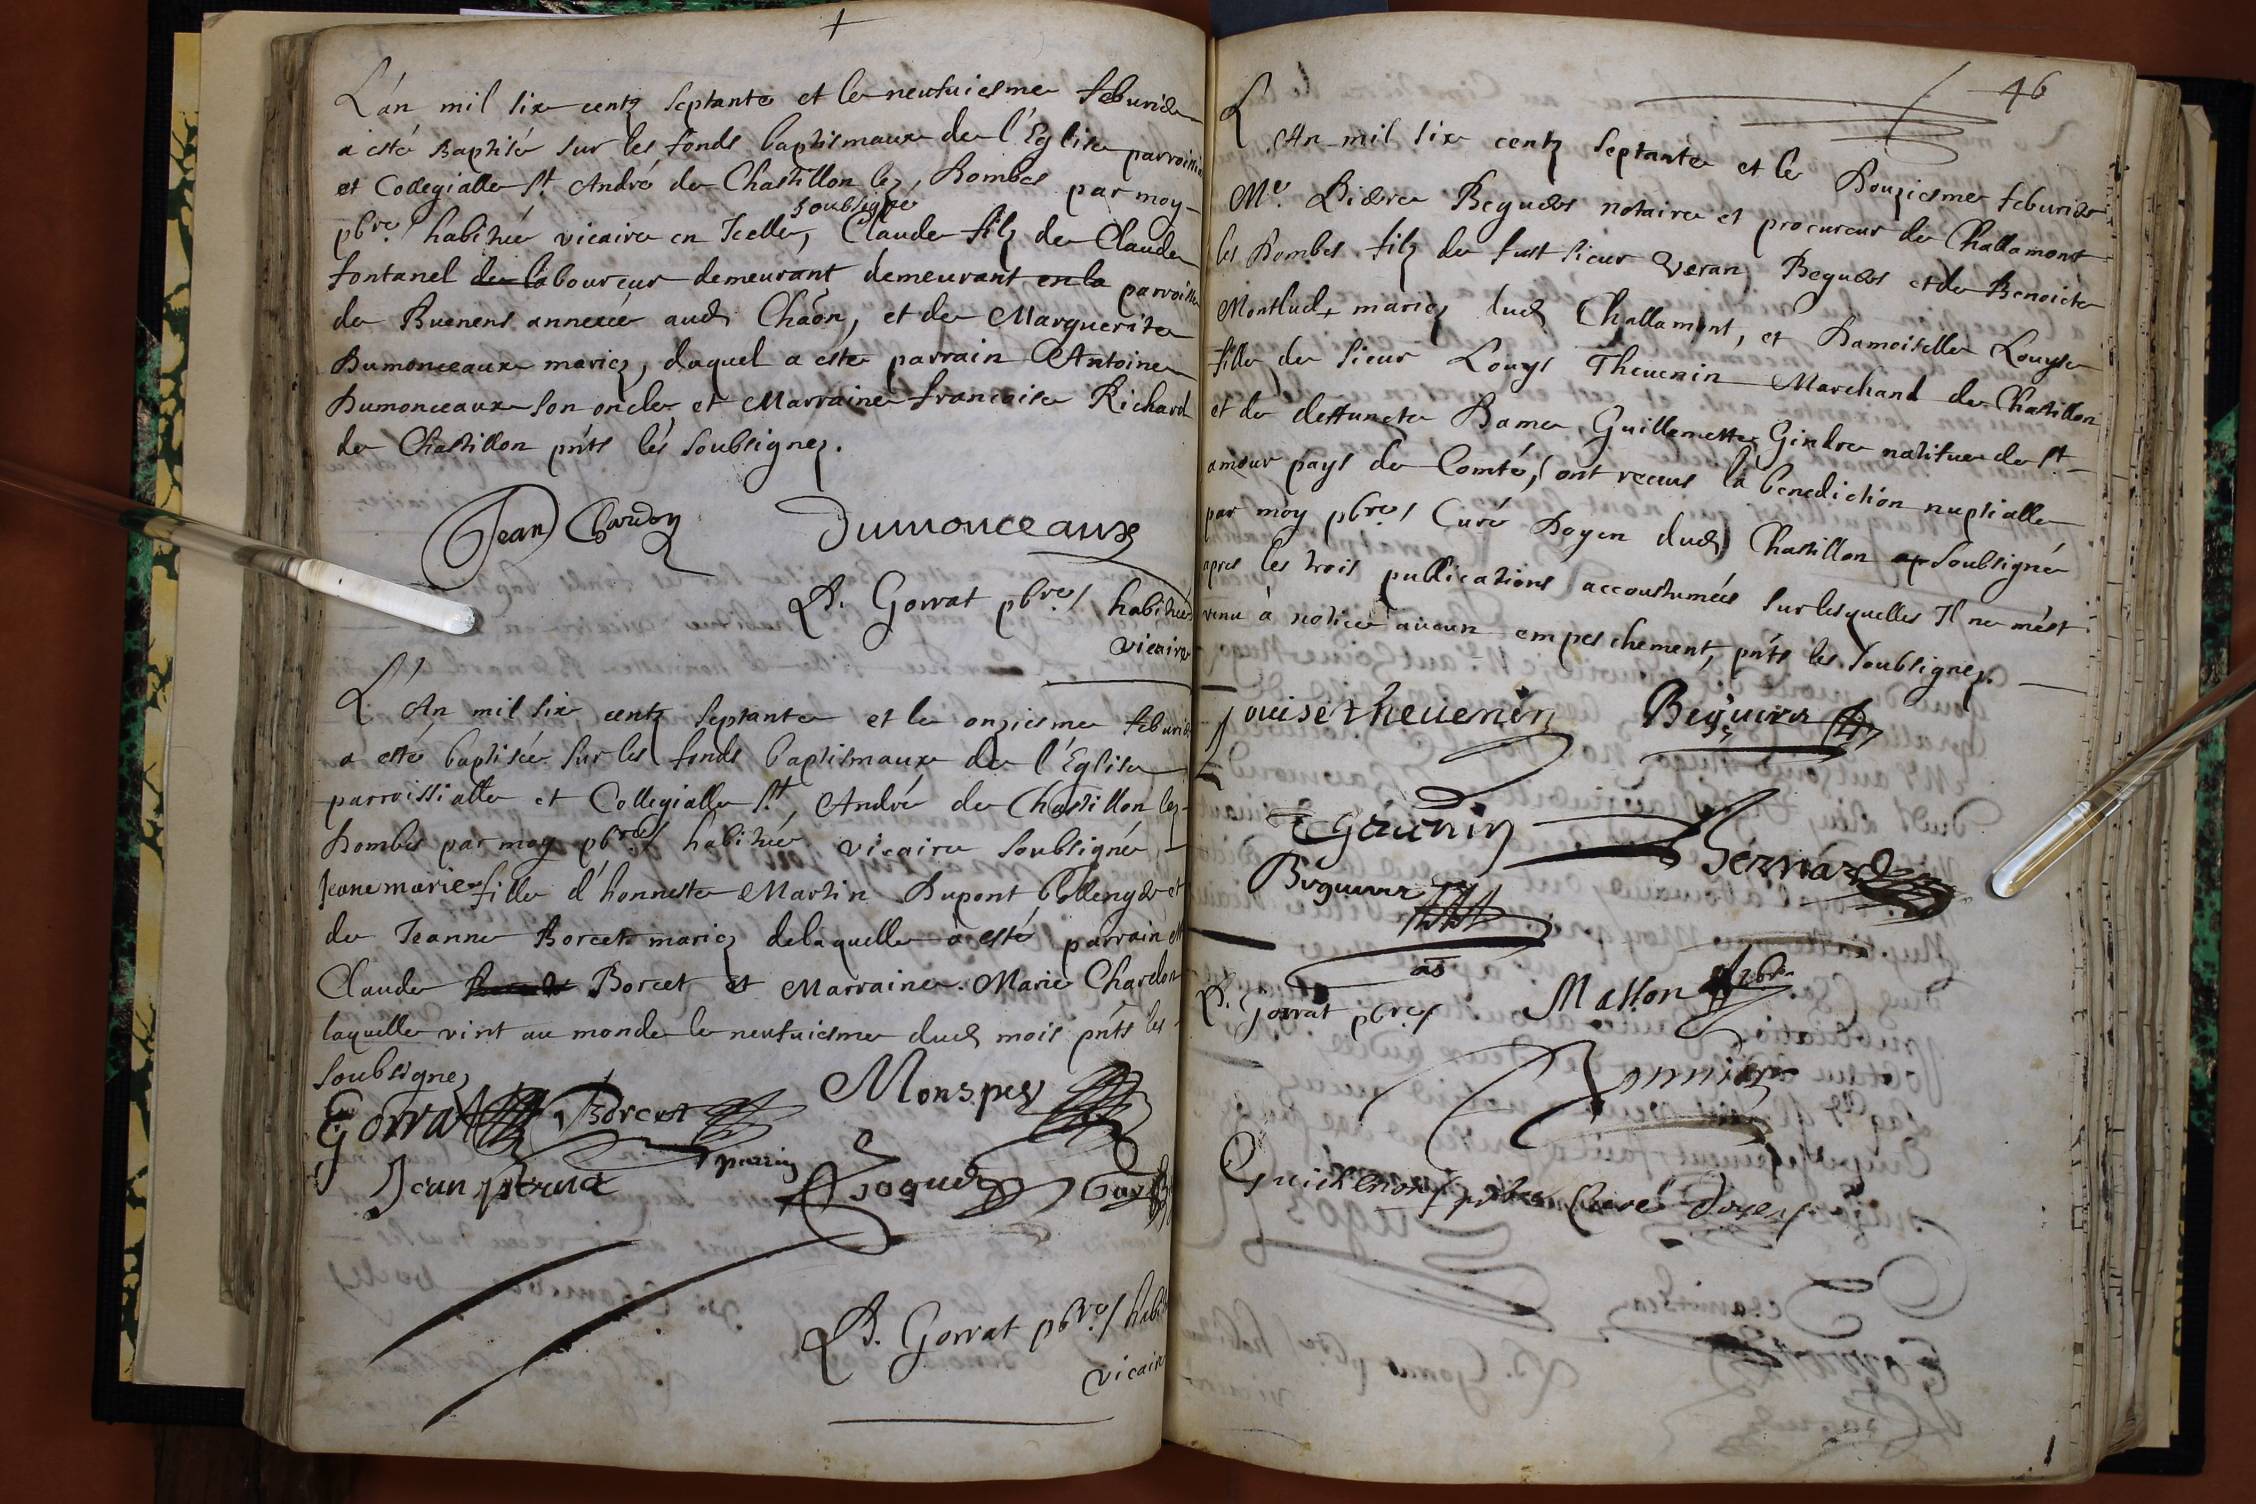 L'án mil six centz septante et le neufuiesme feburier
a esté Baptisé sur les fonds baptismaux de l'Eglise parroissi
et Collegialle St André de Chastillon lez Dombes par moy
soubsigné
pbre habitué vicaire en Icelle, Claude filz de Claude
fontanel de laboureur demeurant demeurant en la parroisse
de Buenens annexée aud Chãon, et de Marguerite
Dumonceaux mariez, duquel a esté parrain Antoine
Dumonceaux son oncle et Marraine francoise Richard
de Chastillon pnts lés soubsignez.
Jean Dumonceaux
B. Gorrat pbre habitué
vicaire
L'An mil six centz septante et le onziesme feburier
a esté baptisée sur les fonds baptismaux de l'Eglise
parroissialle et Collegialle St. André de Chastillon lez
Dombes par moy pbre habitué vicaire soubsigné
Jeane marie fille d'honneste Martin Dupont et
de Jeanne Borcet mariez de laquelle à esté parrain
Claude Borcet et Marraine Marie Chardon
laquelle vint au monde le neufuiesme dud mois pnts les
soubsignez
Gorrat Borcet Monspey
Jean perrin
B. Gorrat pbre habi
vicaire
46
L'An mil six centz septante et le Douziesme feburier
Me. Pierre Beguet notaire et procureur de Challamont
les Dombes filz de fust sieur Veran Beguet et de Benoicte
Montlud mariez dud Challamont, et Damoiselle Louyse
fille de sieur Louys Theuenin Marchand de Chastillon
et de deffuncte Dame Guillemette Gindre natifue de St
amour pays de Comté, ont receus la benediction nuptialle
par moy pbre Curé Doyen dud Chastillon ap soubsigné
apres les trois publications accoustumées sur lesquelles Il ne m'est
venu à notice aucun empeschement, pnts les soubsignez.
Louise theuenin
Bernard
B. Gorrat pbre Masson pbre
Guichenon pbre Curé Doyen